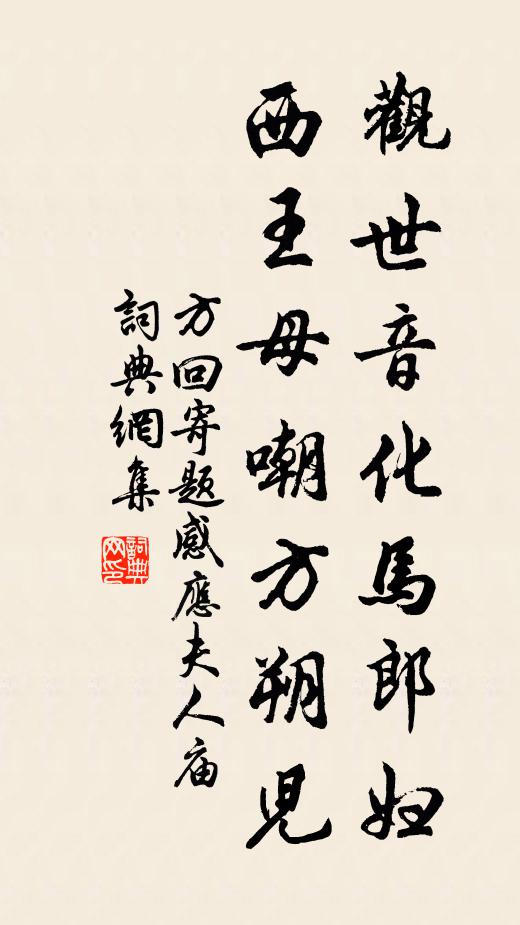 觀世音化馬郎婦
西王母嘲方朔兒
方回寄題感應夫人庙
詞典網集
詞典
网印